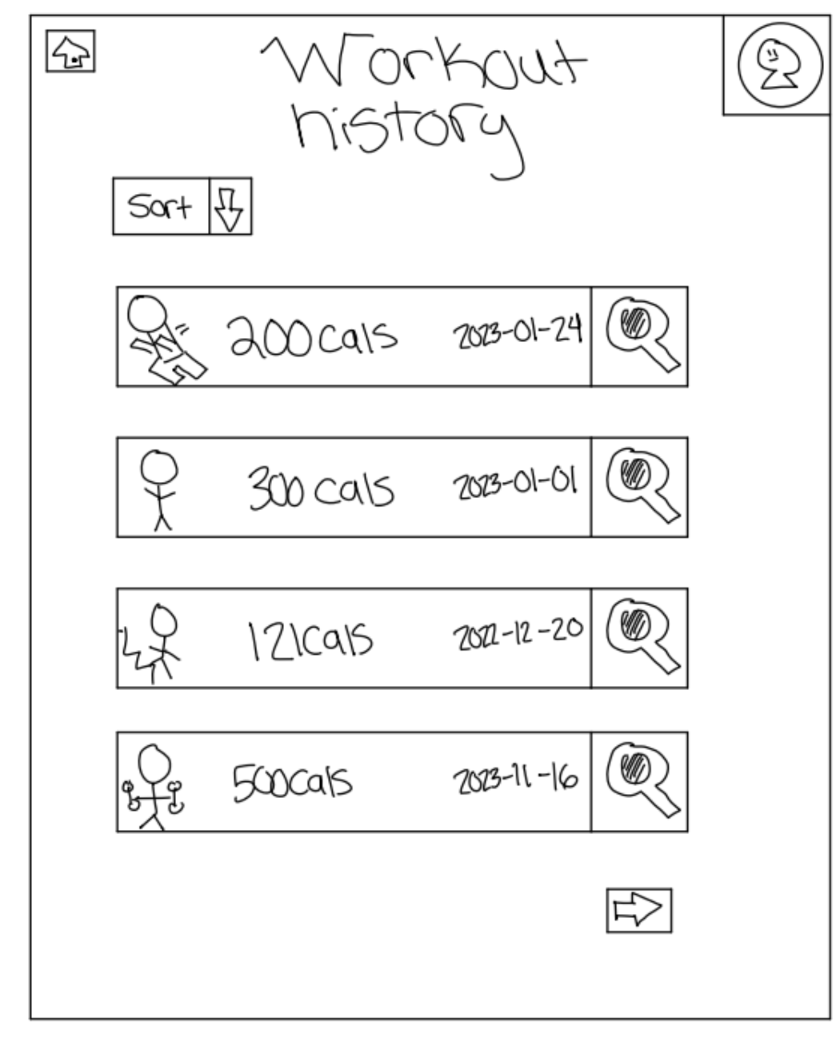 Workout
history
Sort
200 cals 2023-01-24
300 cals 2023-01-01
121 cals 2022-12-20
500 cals 2023-11-16